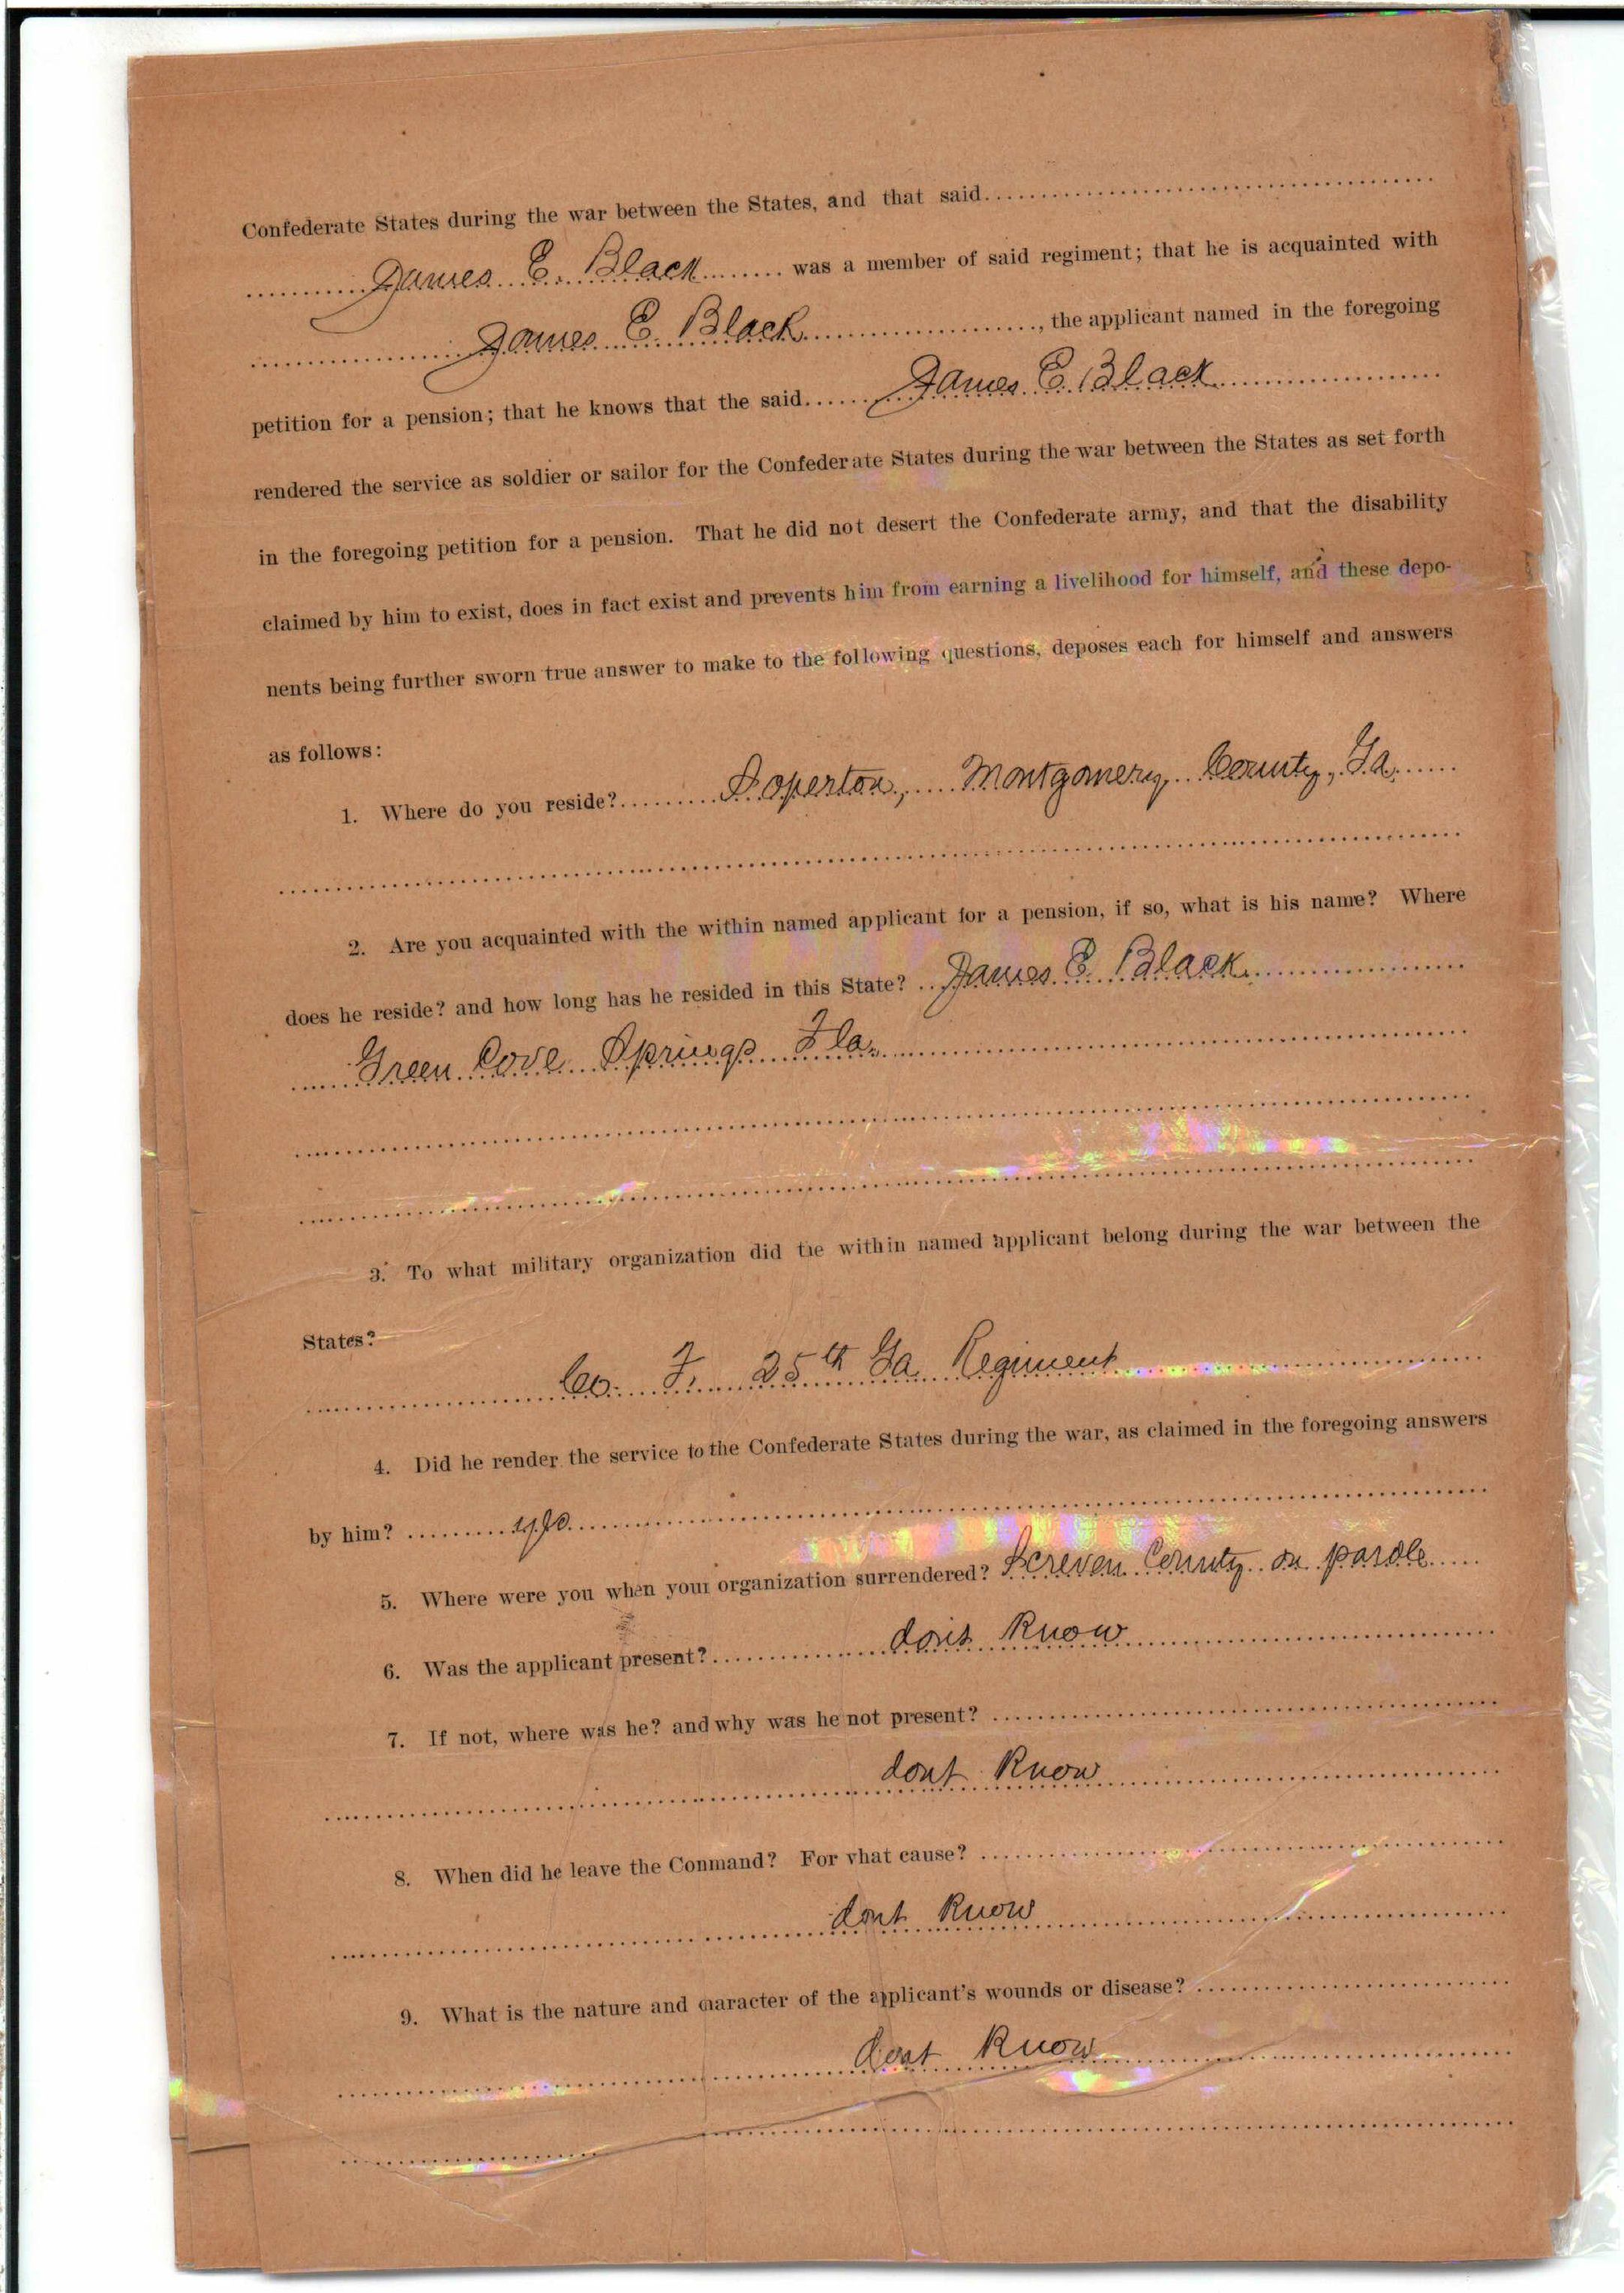 Confederate States during the war between the States, and that said
James E. Black was a member of said regiment; that he is acquainted with
James E. Black, the applicant named in the foregoing
petition for a pension; that he knows that the said James E. Black
rendered the service as soldier or sailor for the Confederate States during the war between the States as set forth
in the foregoing petition for a pension. That he did not desert the Confederate army, and that the disability
claimed by him to exist, does in fact exist and prevents him from earning a livelihood for himself, and these depo-
nents being further sworn true answer to make to the following questions, deposes each for himself and answers
as follows:
1. Where do you reside? Soperton, Montgomery County, Ga
2. Are you acquainted with the within named applicant for a pension, if so, what is his name? Where
does he reside? and how long has he resided in this State? James E. Black
Green Cove Springs Fla.
3. To what military organization did the within named applicant belong during the war between the
States?
Co. F. 25th Ga Regiment
4. Did he render the service to the Confederate States during the war, as claimed in the foregoing answers
by him?
5. Where were you when your organization surrendered? Screven County on parole
6. Was the applicant present? dont know
7. If not, where was he? and why was he not present?
dont know
8. When did he leave the Command? For what cause?
dont know
9. What is the nature and character of the applicant's wounds or disease?
dont know